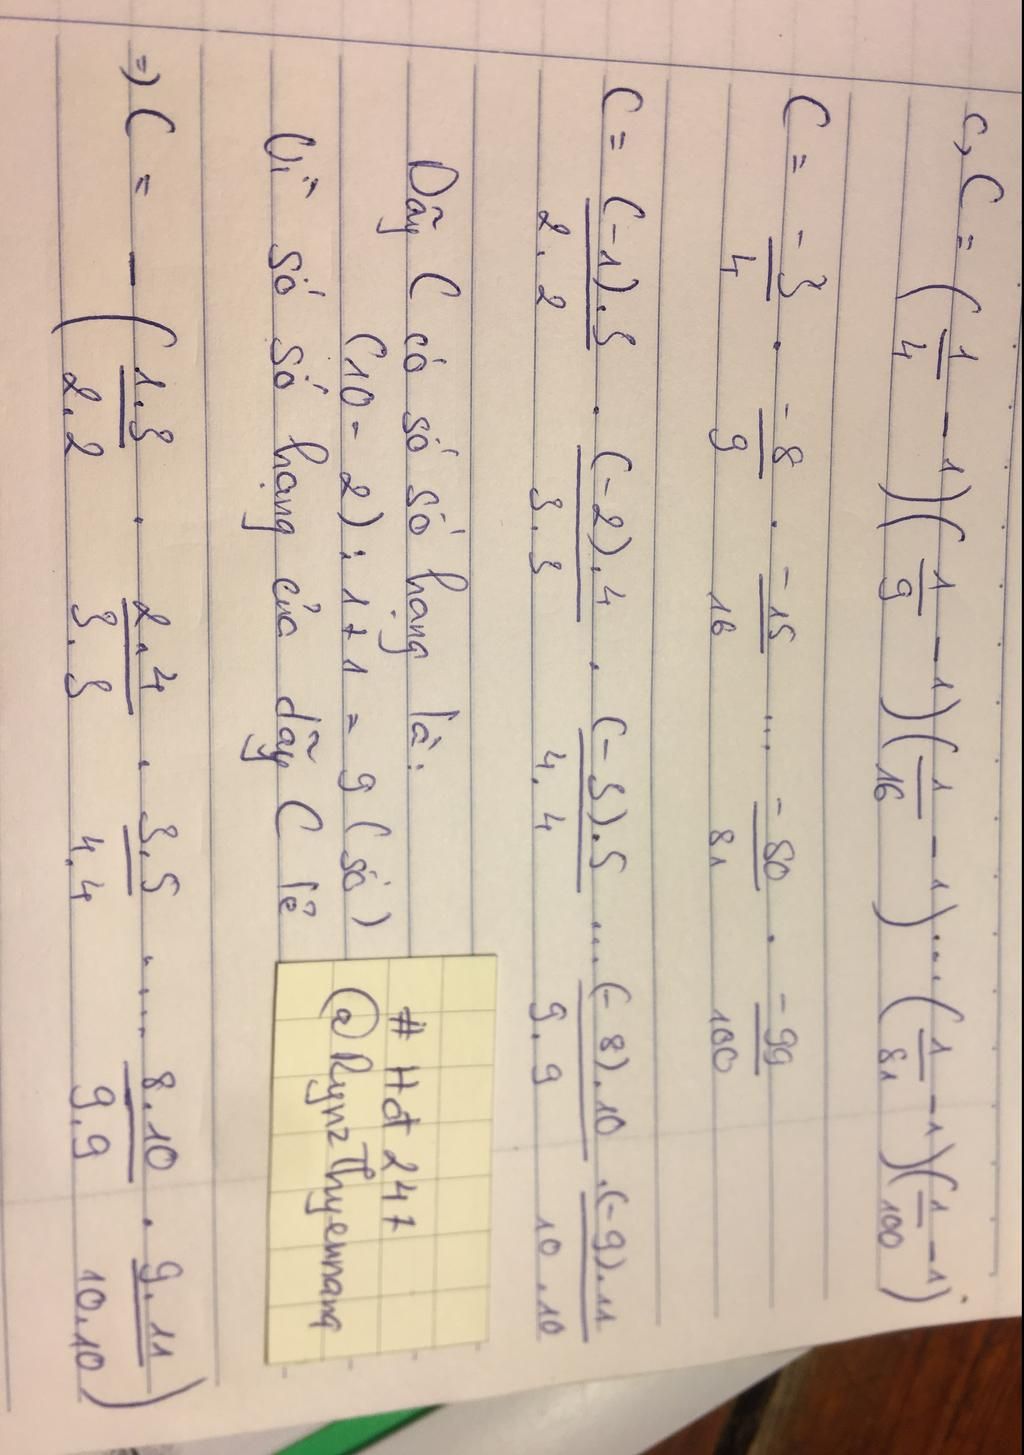 c, C = (1/4 - 1)(1/9 - 1)(1/16 - 1)....(1/81 - 1)(1/100 - 1)
C = -3/4 . -8/9 . -15/16 ... -80/81 . -99/100
C = (-1).3/2.2 . (-2).4/3.3 . (-3).5/4.4 ... (-8).10/9.9 . (-9).11/10.10
Dãy C có số số hạng là:
(10 - 2) : 1 + 1 = 9 (số)
Vì số số hạng của dãy C lẻ
# Hđ 247
@ RynzThyemnang
=> C = - (1.3/2.2 . 2.4/3.3 . 3.5/4.4 ..... 8.10/9.9 . 9.11/10.10)